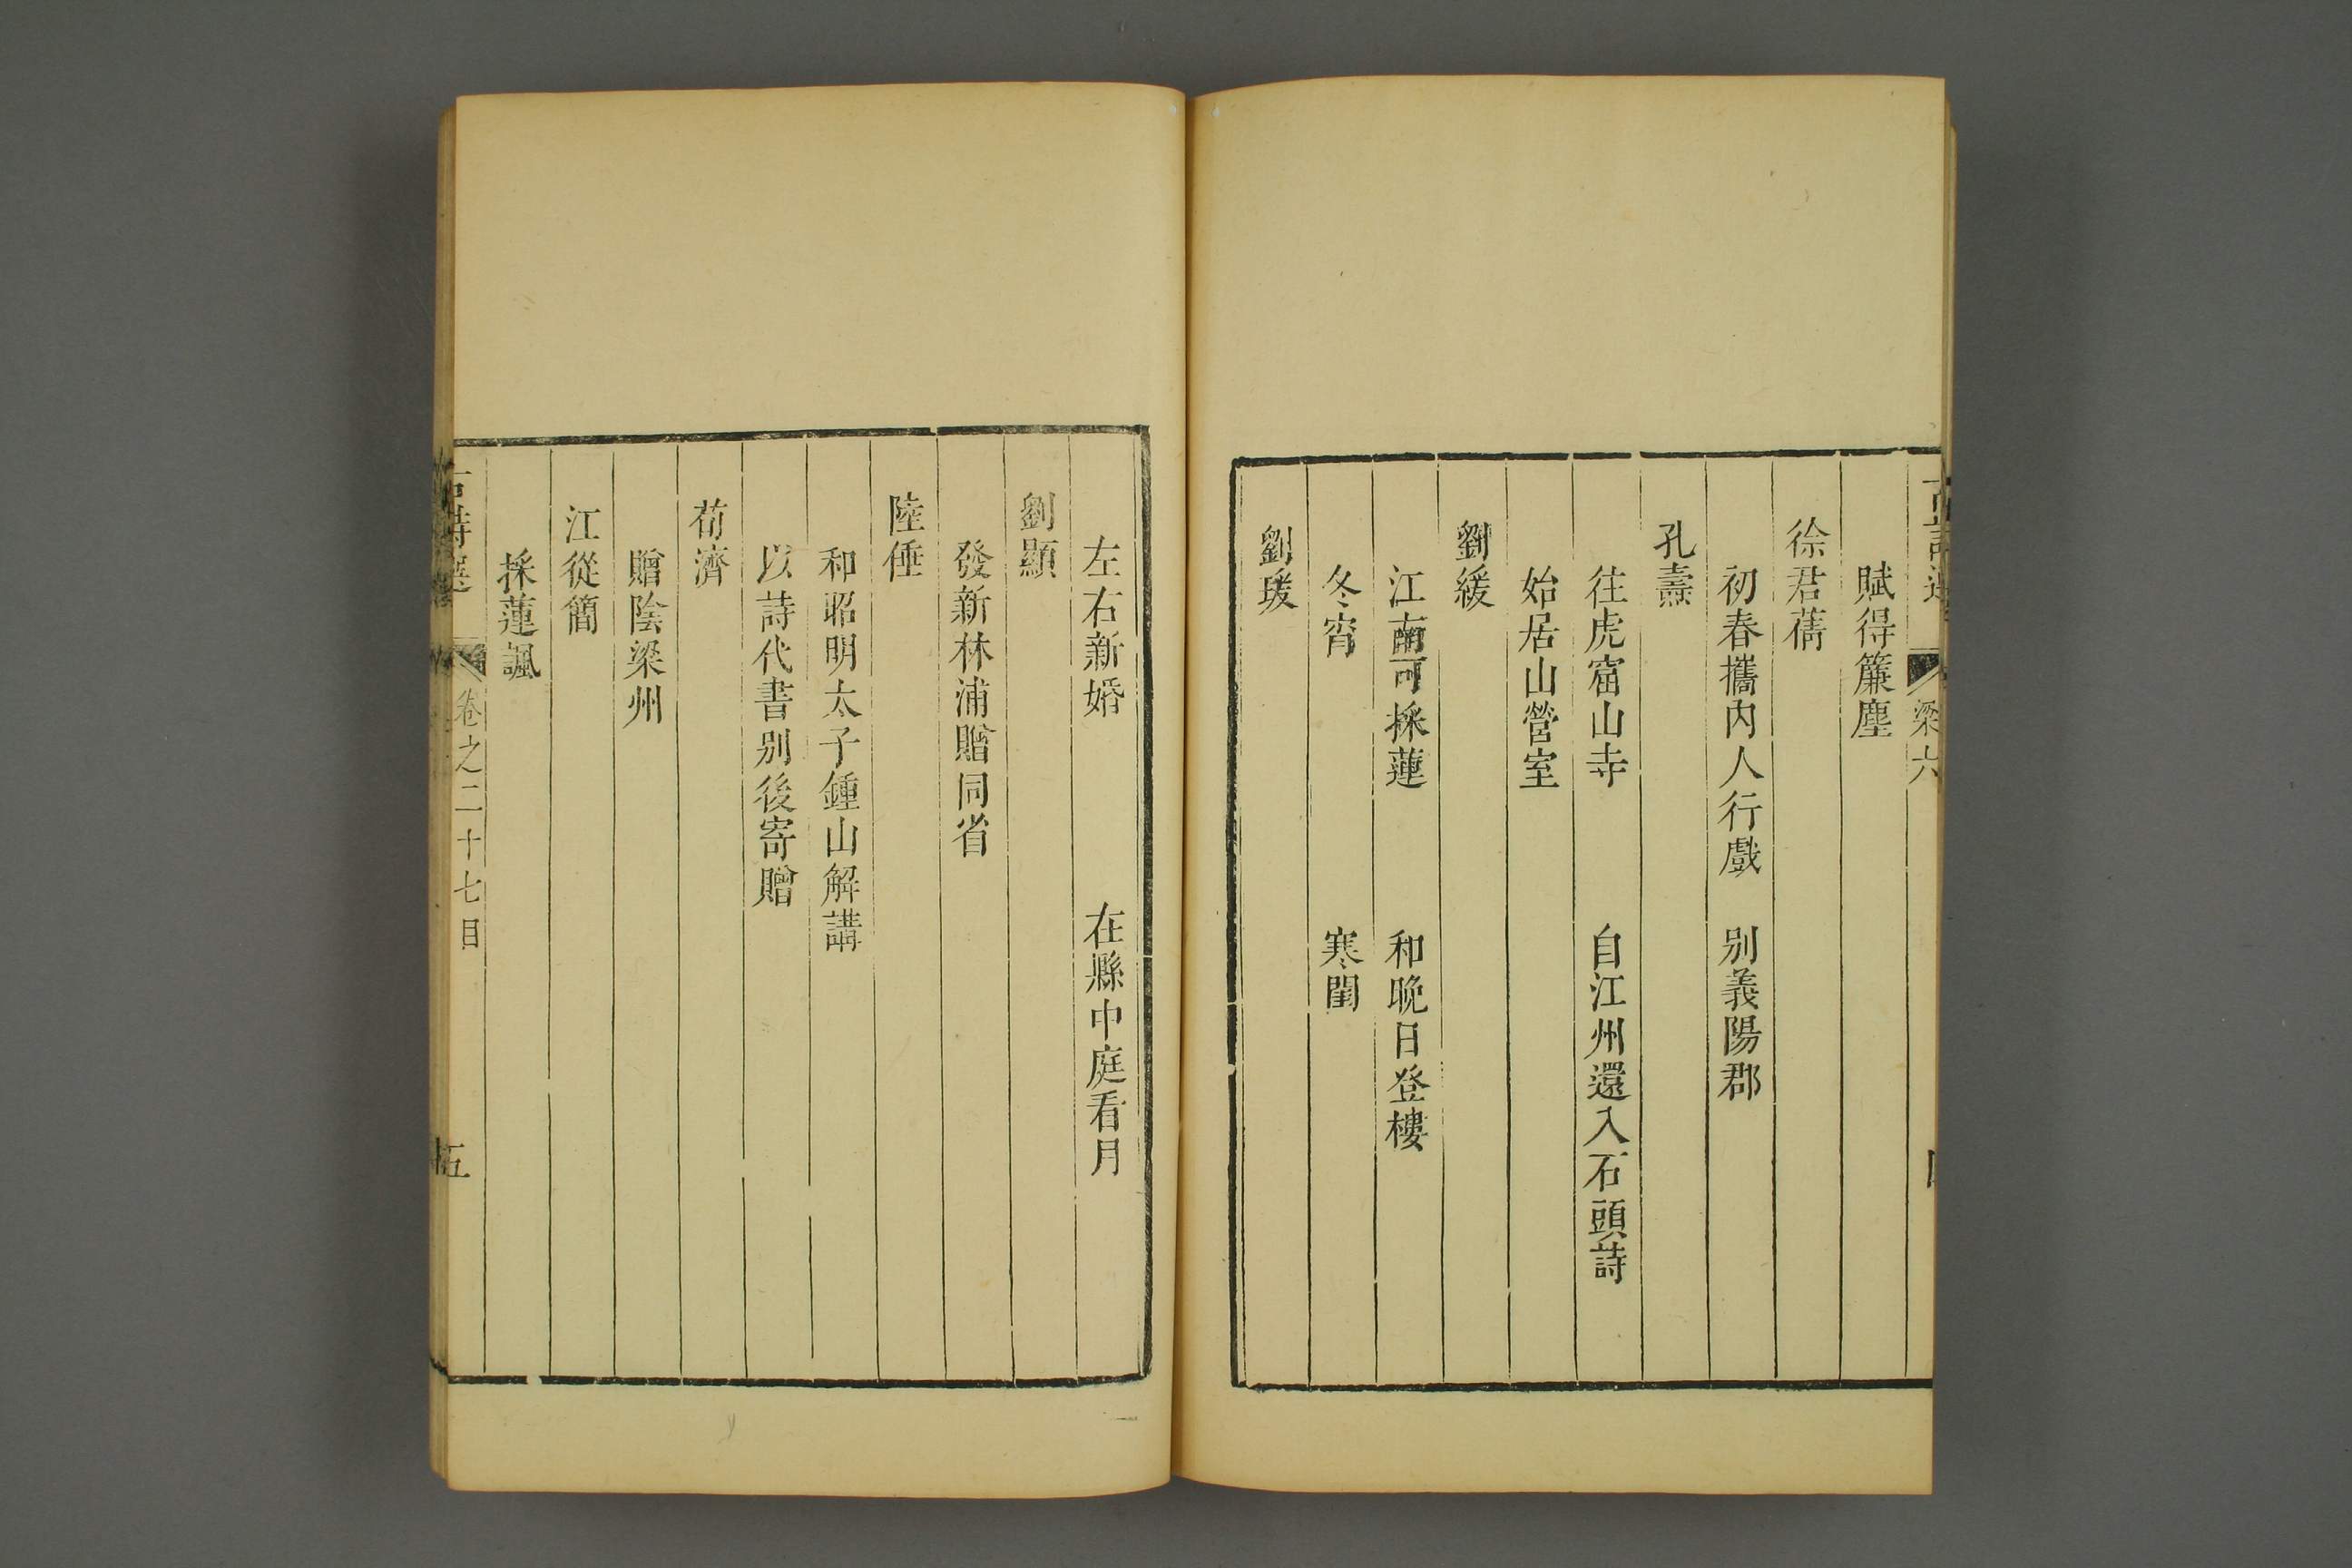 古詩選 梁六 四
賦得簾塵
徐君蒨
初春攜內人行戲 别義陽郡
孔燾
往虎窟山寺 自江州還入石頭詩
始居山營室
劉緩
江南可採蓮 和晚日登樓
冬宵 寒閨
劉瑗
左右新婚 在縣中庭看月
劉顯
發新林浦贈同省
陸倕
和昭明太子鍾山解講
以詩代書别後寄贈
荀濟
贈陰梁州
江從簡
採蓮諷
古詩選 卷之二十七目 五